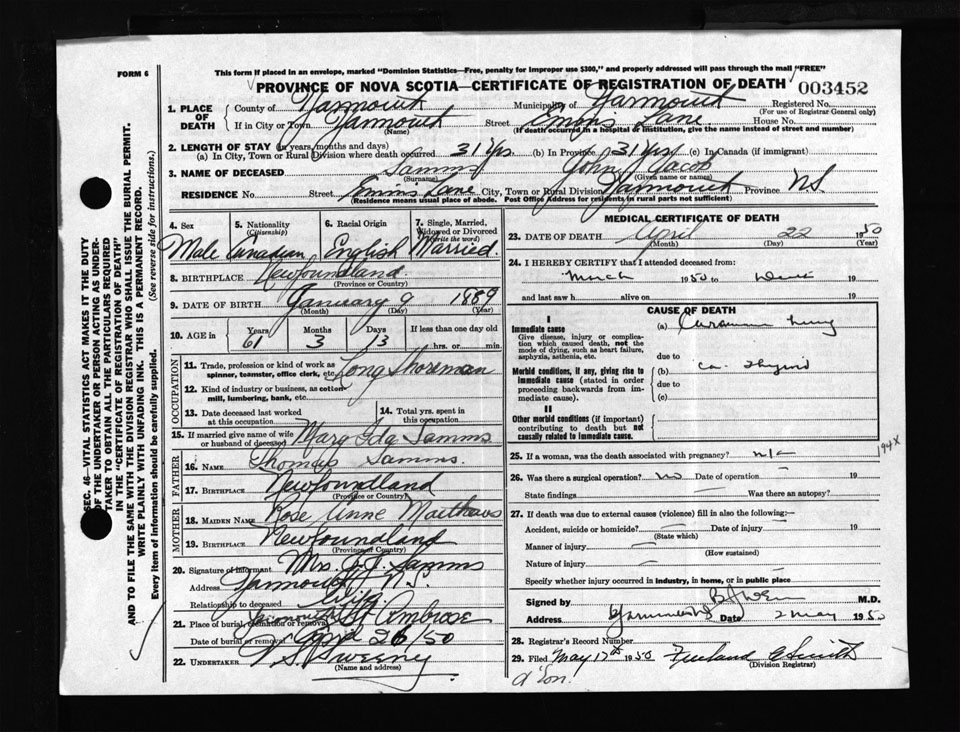 FORM 6
This form if placed in an envelope, marked "Dominion Statistics—Free, penalty for improper use $300," and properly addressed will pass through the mail "FREE"
PROVINCE OF NOVA SCOTIA—CERTIFICATE OF REGISTRATION OF DEATH
003452
1. PLACE OF DEATH
County of Yarmouth Municipality of Yarmouth Registered No.
(For use of Registrar General only)
If in City or Town Yarmouth Street Emons Lane House No.
(Name) (If death occurred in a hospital or institution, give the name instead of street and number)
2. LENGTH OF STAY (in years, months and days)
(a) In City, Town or Rural Division where death occurred 31 Yrs. (b) In Province 31 Yrs (c) In Canada (if immigrant)
3. NAME OF DECEASED Samms John Jacob
(Surname) (Given name or names)
RESIDENCE No. Street Emin's Lane City, Town or Rural Division Yarmouth Province N.S.
(Residence means usual place of abode. Post Office Address for residents in rural parts not sufficient)
4. Sex
Male
5. Nationality
(Citizenship)
Canadian
6. Racial Origin
English
7. Single, Married, Widowed or Divorced
(Write the word)
Married.
8. BIRTHPLACE Newfoundland.
(Province or Country)
9. DATE OF BIRTH January 9 1889
(Month) (Day) (Year)
10. AGE in
Years Months Days If less than one day old
61 3 13 hrs. or min.
OCCUPATION
11. Trade, profession or kind of work as spinner, teamster, office clerk, etc. Long Shoreman
12. Kind of industry or business, as cotton mill, lumbering, bank, etc.
13. Date deceased last worked at this occupation
14. Total yrs. spent in this occupation
15. If married give name of wife or husband of deceased Mary Ida Samms
FATHER
16. NAME Thomas Samms.
17. BIRTHPLACE Newfoundland
(Province or Country)
MOTHER
18. MAIDEN NAME Rose Anne Matthews
19. BIRTHPLACE Newfoundland
(Province or Country)
20. Signature of informant Mrs. J. J. Samms
Address Yarmouth N.S.
Relationship to deceased Wife
21. Place of burial, cremation or removal Yarmouth St Ambrose
Date of burial or removal April 26/50
22. UNDERTAKER V S Sweeny
(Name and address)
MEDICAL CERTIFICATE OF DEATH
23. DATE OF DEATH April 22 1950
(Month) (Day) (Year)
24. I HEREBY CERTIFY that I attended deceased from:
March 1950 to 19
and last saw h alive on 19
CAUSE OF DEATH
I
Immediate cause
Give disease, injury or complication which caused death, not the mode of dying, such as heart failure, asphyxia, asthenia, etc.
(a) Carcinoma lung
due to
Morbid conditions, if any, giving rise to immediate cause (stated in order proceeding backwards from immediate cause).
(b) Ca. Thyroid
due to
(c)
II
Other morbid conditions (if important) contributing to death but not causally related to immediate cause.
194X
25. If a woman, was the death associated with pregnancy? n/a
26. Was there a surgical operation? no Date of operation — 19
State findings — Was there an autopsy?
27. If death was due to external causes (violence) fill in also the following:—
Accident, suicide or homicide? — Date of injury — 19
(State which)
Manner of injury —
(How sustained)
Nature of injury —
Specify whether injury occurred in industry, in home, or in public place
Signed by M.D.
Address Date 2 May 1950
28. Registrar's Record Number
29. Filed May 17th 1950 Freeland E Smith
(Division Registrar)
SEC. 46—VITAL STATISTICS ACT MAKES IT THE DUTY
OF THE UNDERTAKER OR PERSON ACTING AS UNDERTAKER TO OBTAIN ALL THE PARTICULARS REQUIRED
IN THE "CERTIFICATE OF REGISTRATION OF DEATH"
AND TO FILE THE SAME WITH THE DIVISION REGISTRAR WHO SHALL ISSUE THE BURIAL PERMIT.
WRITE PLAINLY WITH UNFADING INK. THIS IS A PERMANENT RECORD.
Every item of information should be carefully supplied. (See reverse side for instructions.)